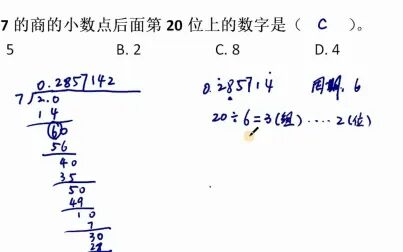 7 的商的小数点后面第 20 位上的数字是（ C ）。
5 B. 2 C. 8 D. 4
0.2857142
7 2.0
1 4
60
56
40
35
50
49
10
7
30
28
0.285714 周期: 6
20÷6=3(组)····2(位)